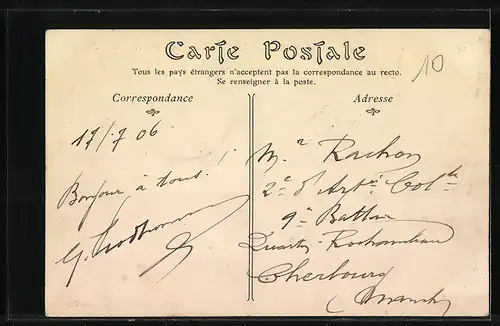 Carte Postale
Tous les pays étrangers n'acceptent pas la correspondance au recto.
Se renseigner à la poste.
10
Correspondance
Adresse
17/7 06
Bonjour à tous !
Mr Rachon
2e d'Artie Colle
9e Batterie
Quartier Rochambeau
Cherbourg
(Manche)